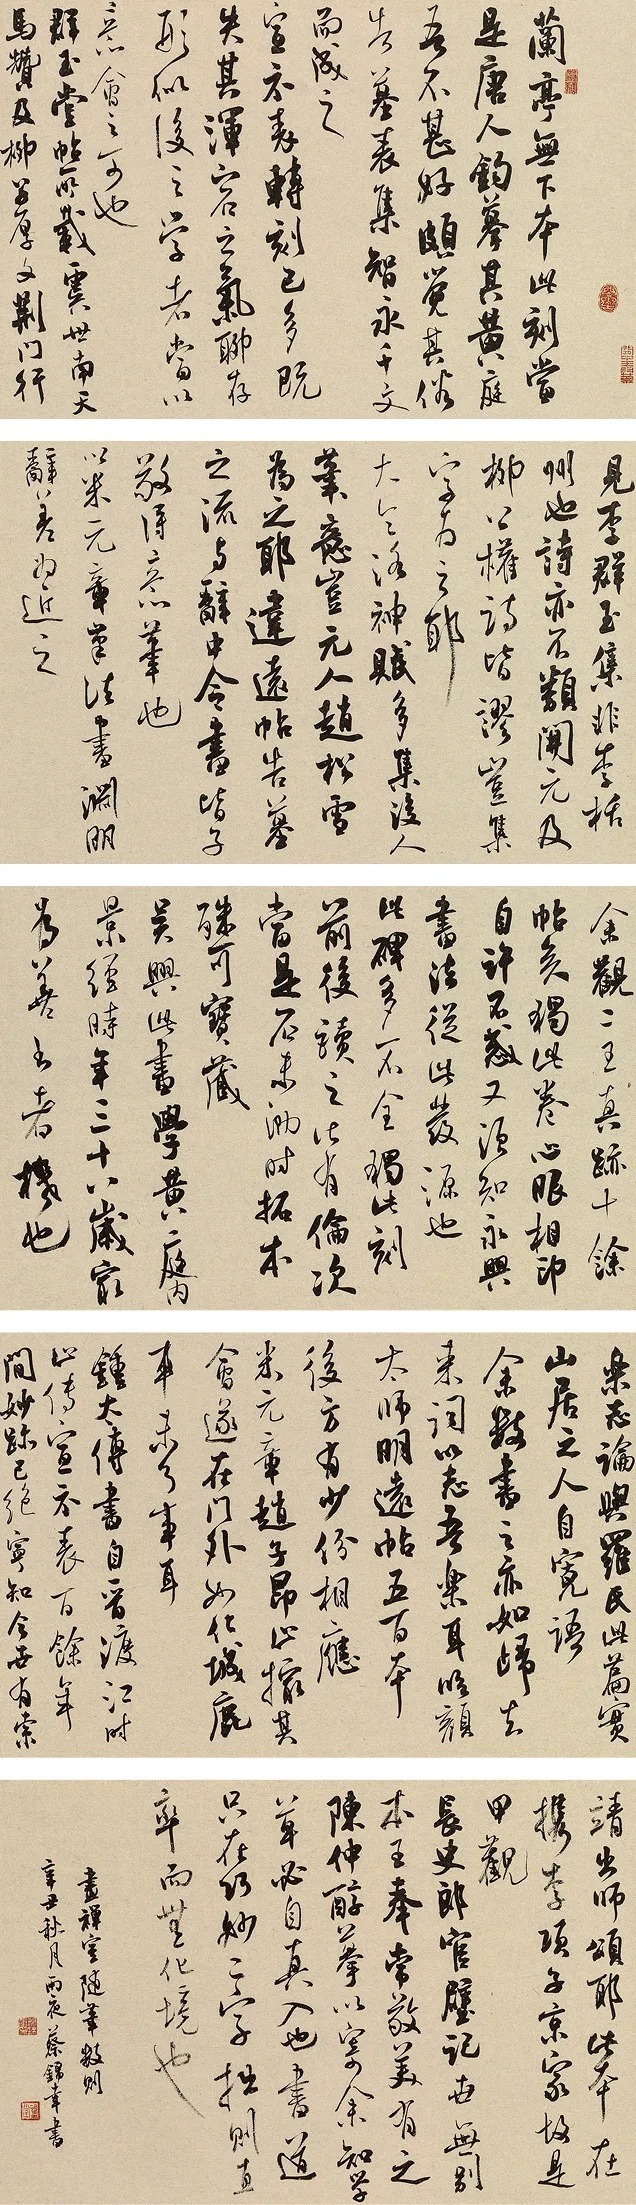 蘭亭無下本此刻當
是唐人鉤摹其黃庭
吾不甚好頗覺其俗
告墓表集智永千文
而成之
宣示表轉刻已多既
失其渾宕之氣聊存
形似後之學者當以
意會之可也
群玉堂帖所載虞世南天
馬贊及柳公厚文荊門行
見李群玉集非李栝
州也詩亦不類開元及
柳公權詩皆謬豈集
字為之耶
大令洛神賦多集後人
筆意豈元人趙松雪
為之耶違遠帖告墓
之流与辭中令書皆子
敬得意筆也
以米元章筆法書淵明
辭差為近之
余觀二王真跡十餘
帖矣獨此卷心眼相印
自許不惑又須知永興
書法從此發源也
此碑多不全獨此刻
前後讀之皆有倫次
當是石未泐時拓本
殊可寶藏
吳興此書學黃庭內
景經時年三十八歲最
為善者機也
樂志論與羅氏此篇實
山居之人自寬語
余數書之亦如歸去
來詞以志吾樂耳臨顏
太師明遠帖五百本
後方有少份相應
米元章趙子昂止撮其
會遂在門外如化城鹿
車未了事耳
鍾太傅書自晉渡江時
止傳宣示表百餘年
間妙跡已絕寧知今世有索
靖出師頌耶此本在
檇李項子京家故是
甲觀
長史郎官壁記世無別
本王奉常敬美有之
陳仲醇摹以寄余知學
草必自真入也書道
只在巧妙二字拙則直
率而無化境也
畫禪室隨筆數則
辛丑秋月雨夜蔡錦幸書